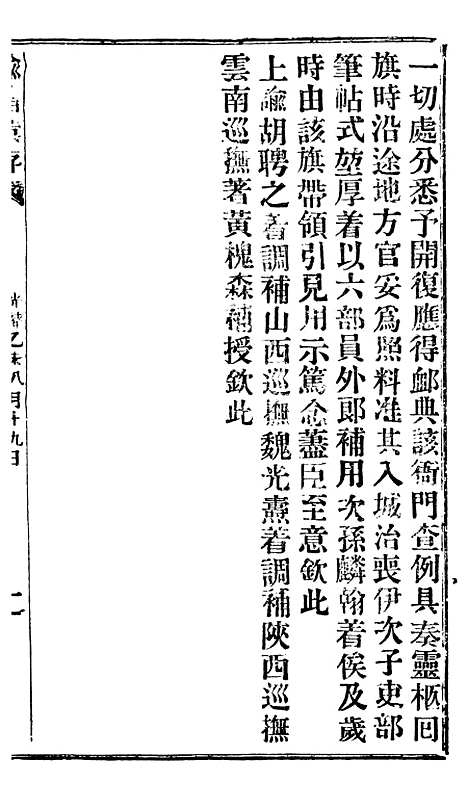 一切處分悉予開復應得衈典該衙門查例具奏靈柩囘
旗時沿途地方官妥爲照料准其入城治喪伊次子吏部
筆帖式堃厚着以六部員外郎補用次孫麟翰着俟及歲
時由該旗帶領引見用示篤念藎臣至意欽此
上諭胡聘之着調補山西巡撫魏光燾着調補陝西巡撫
雲南巡撫著黃槐森補授欽此
乙未八月十九日
二